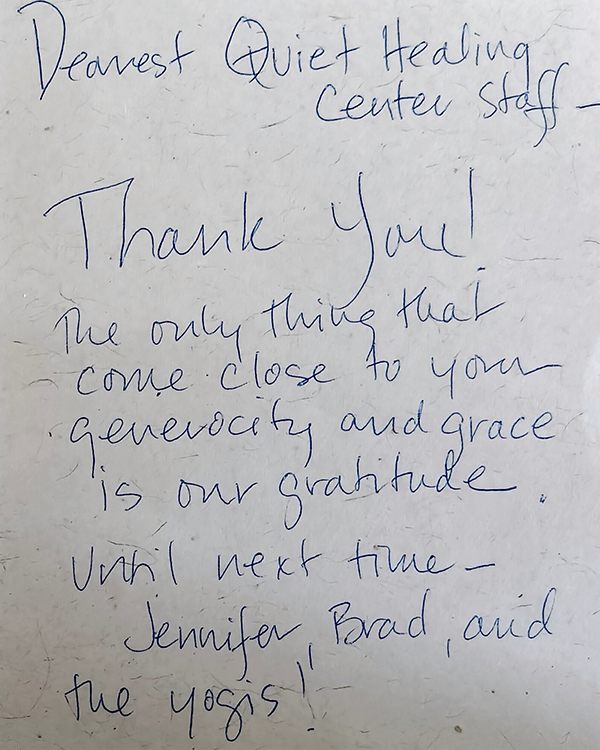 Dearest Quiet Healing
Center Staff –
Thank You!
The only thing that
come close to your
generocity and grace
is our gratitude.
Until next time –
Jennifer, Brad, and
the yogis!